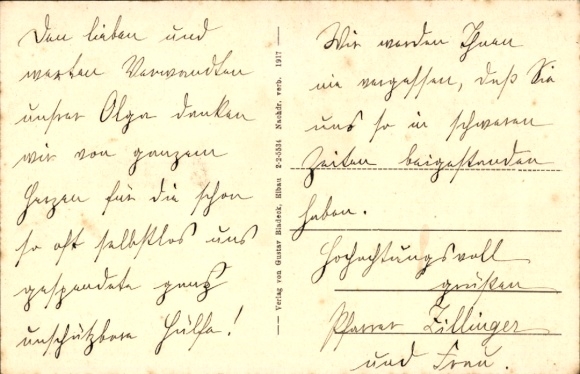 Den lieben und
werten Verwandten
unsrer Olga danken
wir von ganzem
Herzen für die schon
so oft selbstlos uns
gespendete ganz
unschützbare Hülfe!
— Verlag von Gustav Bladeck, Elbau 2-2-5534 Nachdr. verb. 1917 —
Wir werden Ihnen
nie vergessen, daß Sie
uns so in schweren
Zeiten beigestanden
haben.
Hochachtungsvoll
grüßen
Pfarrer Zillinger
und Frau.